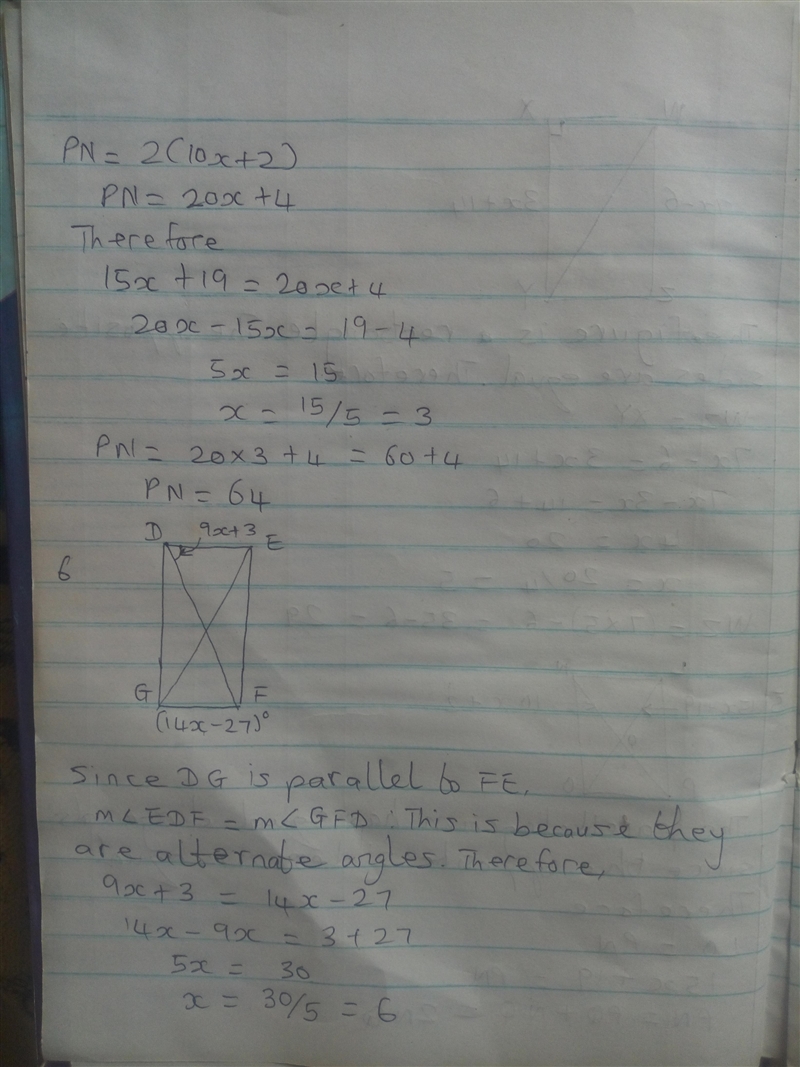 PN = 2(10x+2)
PN = 20x+4
Therefore
15x+19 = 20x+4
20x-15x = 19-4
5x = 15
x = 15/5 = 3
PN = 20×3+4 = 60+4
PN = 64
6
D 9x+3 E
G F
(14x-27)°
Since DG is parallel to FE,
m∠EDF = m∠GFD. This is because they
are alternate angles. Therefore,
9x+3 = 14x-27
14x-9x = 3+27
5x = 30
x = 30/5 = 6